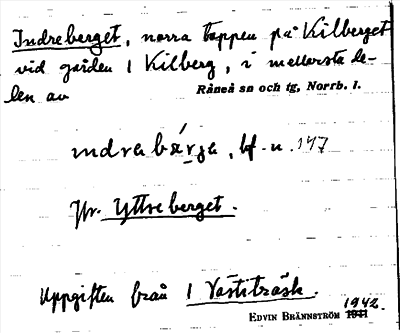 Indreberget, norra toppen på Kilberget
vid gården 1 Kilberg, i mellersta de-
len av
Råneå sn och tg, Norrb. l.
indrabärja, bf. n. 147
Jfr. Yttreberget.
Uppgiften från 1 Västiträsk.
1942.
EDVIN BRÄNNSTRÖM 1941